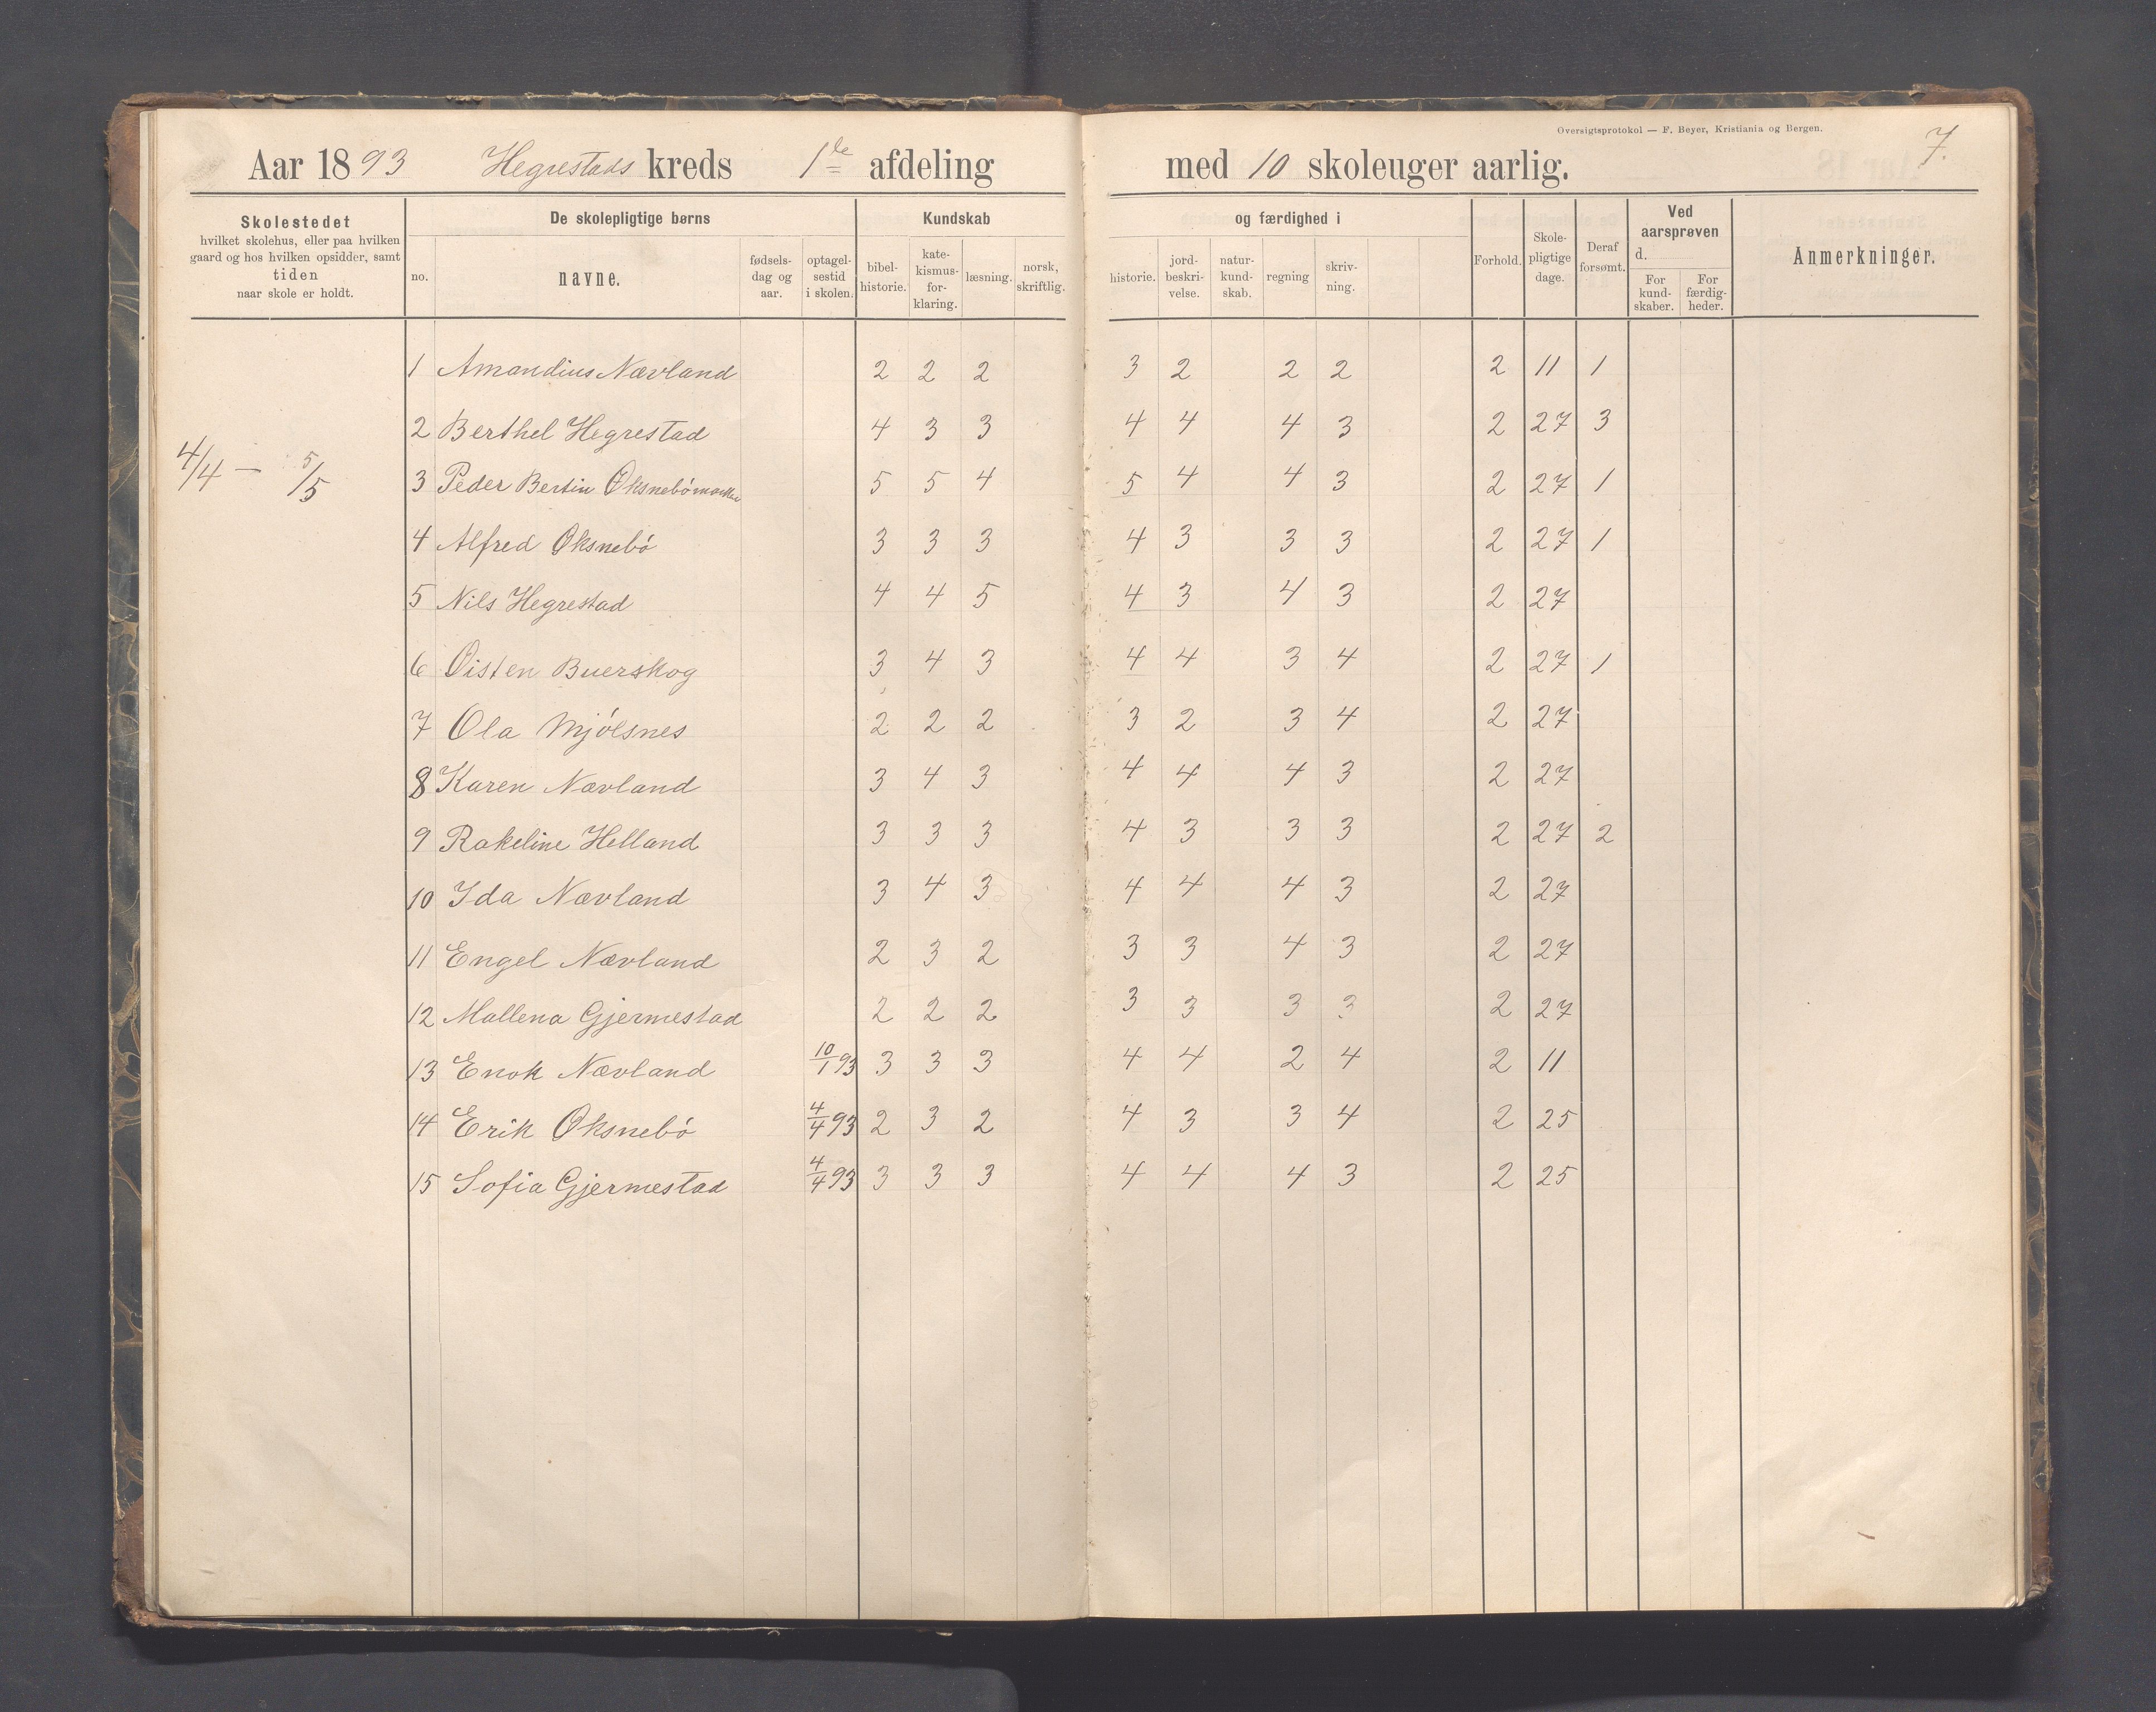 Oversigtsprotokol — F. Beyer, Kristiania og Bergen.
7.
Aar 1893 Hegrestads kreds 1ste afdeling med 10 skoleuger aarlig.
Skolestedet hvilket skolehus, eller paa hvilken gaard og hos hvilken opsidder, samt tiden naar skole er holdt.
De skolepligtige børns
no. navne. fødselsdag og aar. optagelsestid i skolen.
Kundskab og færdighed i
bibelhistorie. katekismusforklaring. læsning. norsk, skriftlig. historie. jordbeskrivelse. naturkundskab. regning skrivning.
Forhold. Skolepligtige dage. Deraf forsømt.
Ved aarsprøven d.
For kundskaber. For færdigheder.
Anmerkninger.
4/4 — 5/5
1 Amandius Nævland 2 2 2 3 2 2 2 2 11 1
2 Berthel Hegrestad 4 3 3 4 4 4 3 2 27 3
3 Peder Bertin 5 5 4 5 4 4 3 2 27 1
4 Alfred Øksnebö 3 3 3 4 3 3 3 2 27 1
5 Nils Hegrestad 4 4 5 4 3 4 3 2 27
6 Öisten Buerskog 3 4 3 4 4 3 4 2 27 1
7 Ola Mjölsnes 2 2 2 3 2 3 4 2 27
8 Karen Nævland 3 4 3 4 4 4 3 2 27
9 Rakeline Helland 3 3 3 4 3 3 3 2 27 2
10 Ida Nævland 3 4 3 4 4 4 3 2 27
11 Engel Nævland 2 3 2 3 3 4 3 2 27
12 Mallena Gjermestad 2 2 2 3 3 3 3 2 27
13 Enok Nævland 10/1 93 3 3 3 4 4 2 4 2 11
14 Erik Øksnebö 4/4 93 2 3 2 4 3 3 4 2 25
15 Sofia Gjermestad 4/4 93 3 3 3 4 4 4 3 2 25